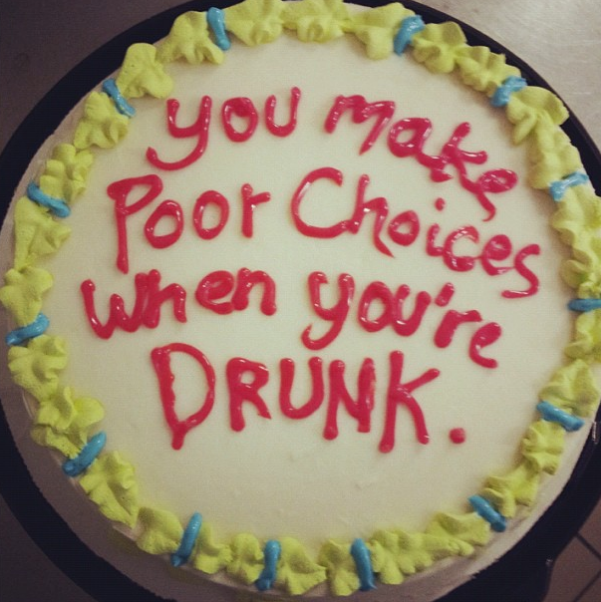 You make
Poor Choices
When you're
DRUNK.